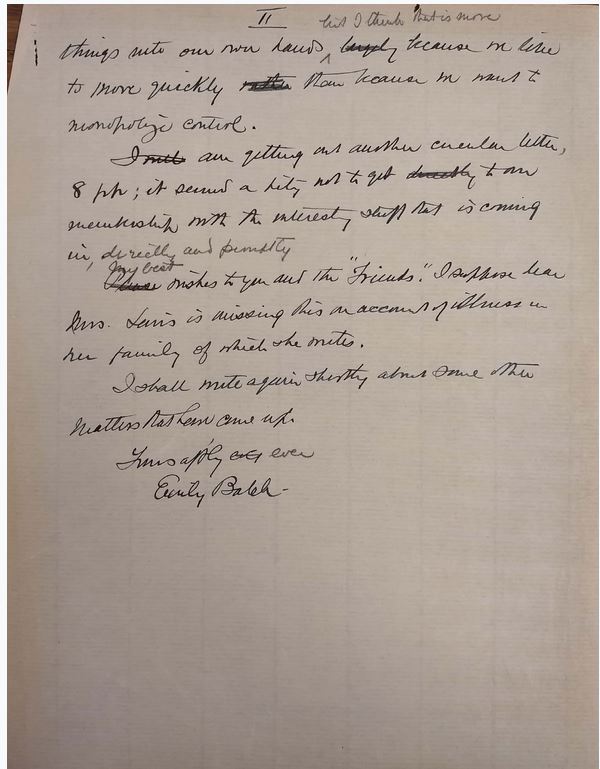 II
but I think that is more
things into our own hands, largely because we like
to move quickly rather than because we want to
monopolize control.
I am getting out another circular letter,
8 pp; it seemed a pity not to get directly to our
membership with the interesting stuff that is coming
in, directly and promptly
My best
Please wishes to you and the "Friends". I suppose dear
Mrs. Lewis is missing this on account of illness in
her family of which she writes.
I shall write again shortly about some other
matters that have come up.
Yours affly ever
Emily Balch -